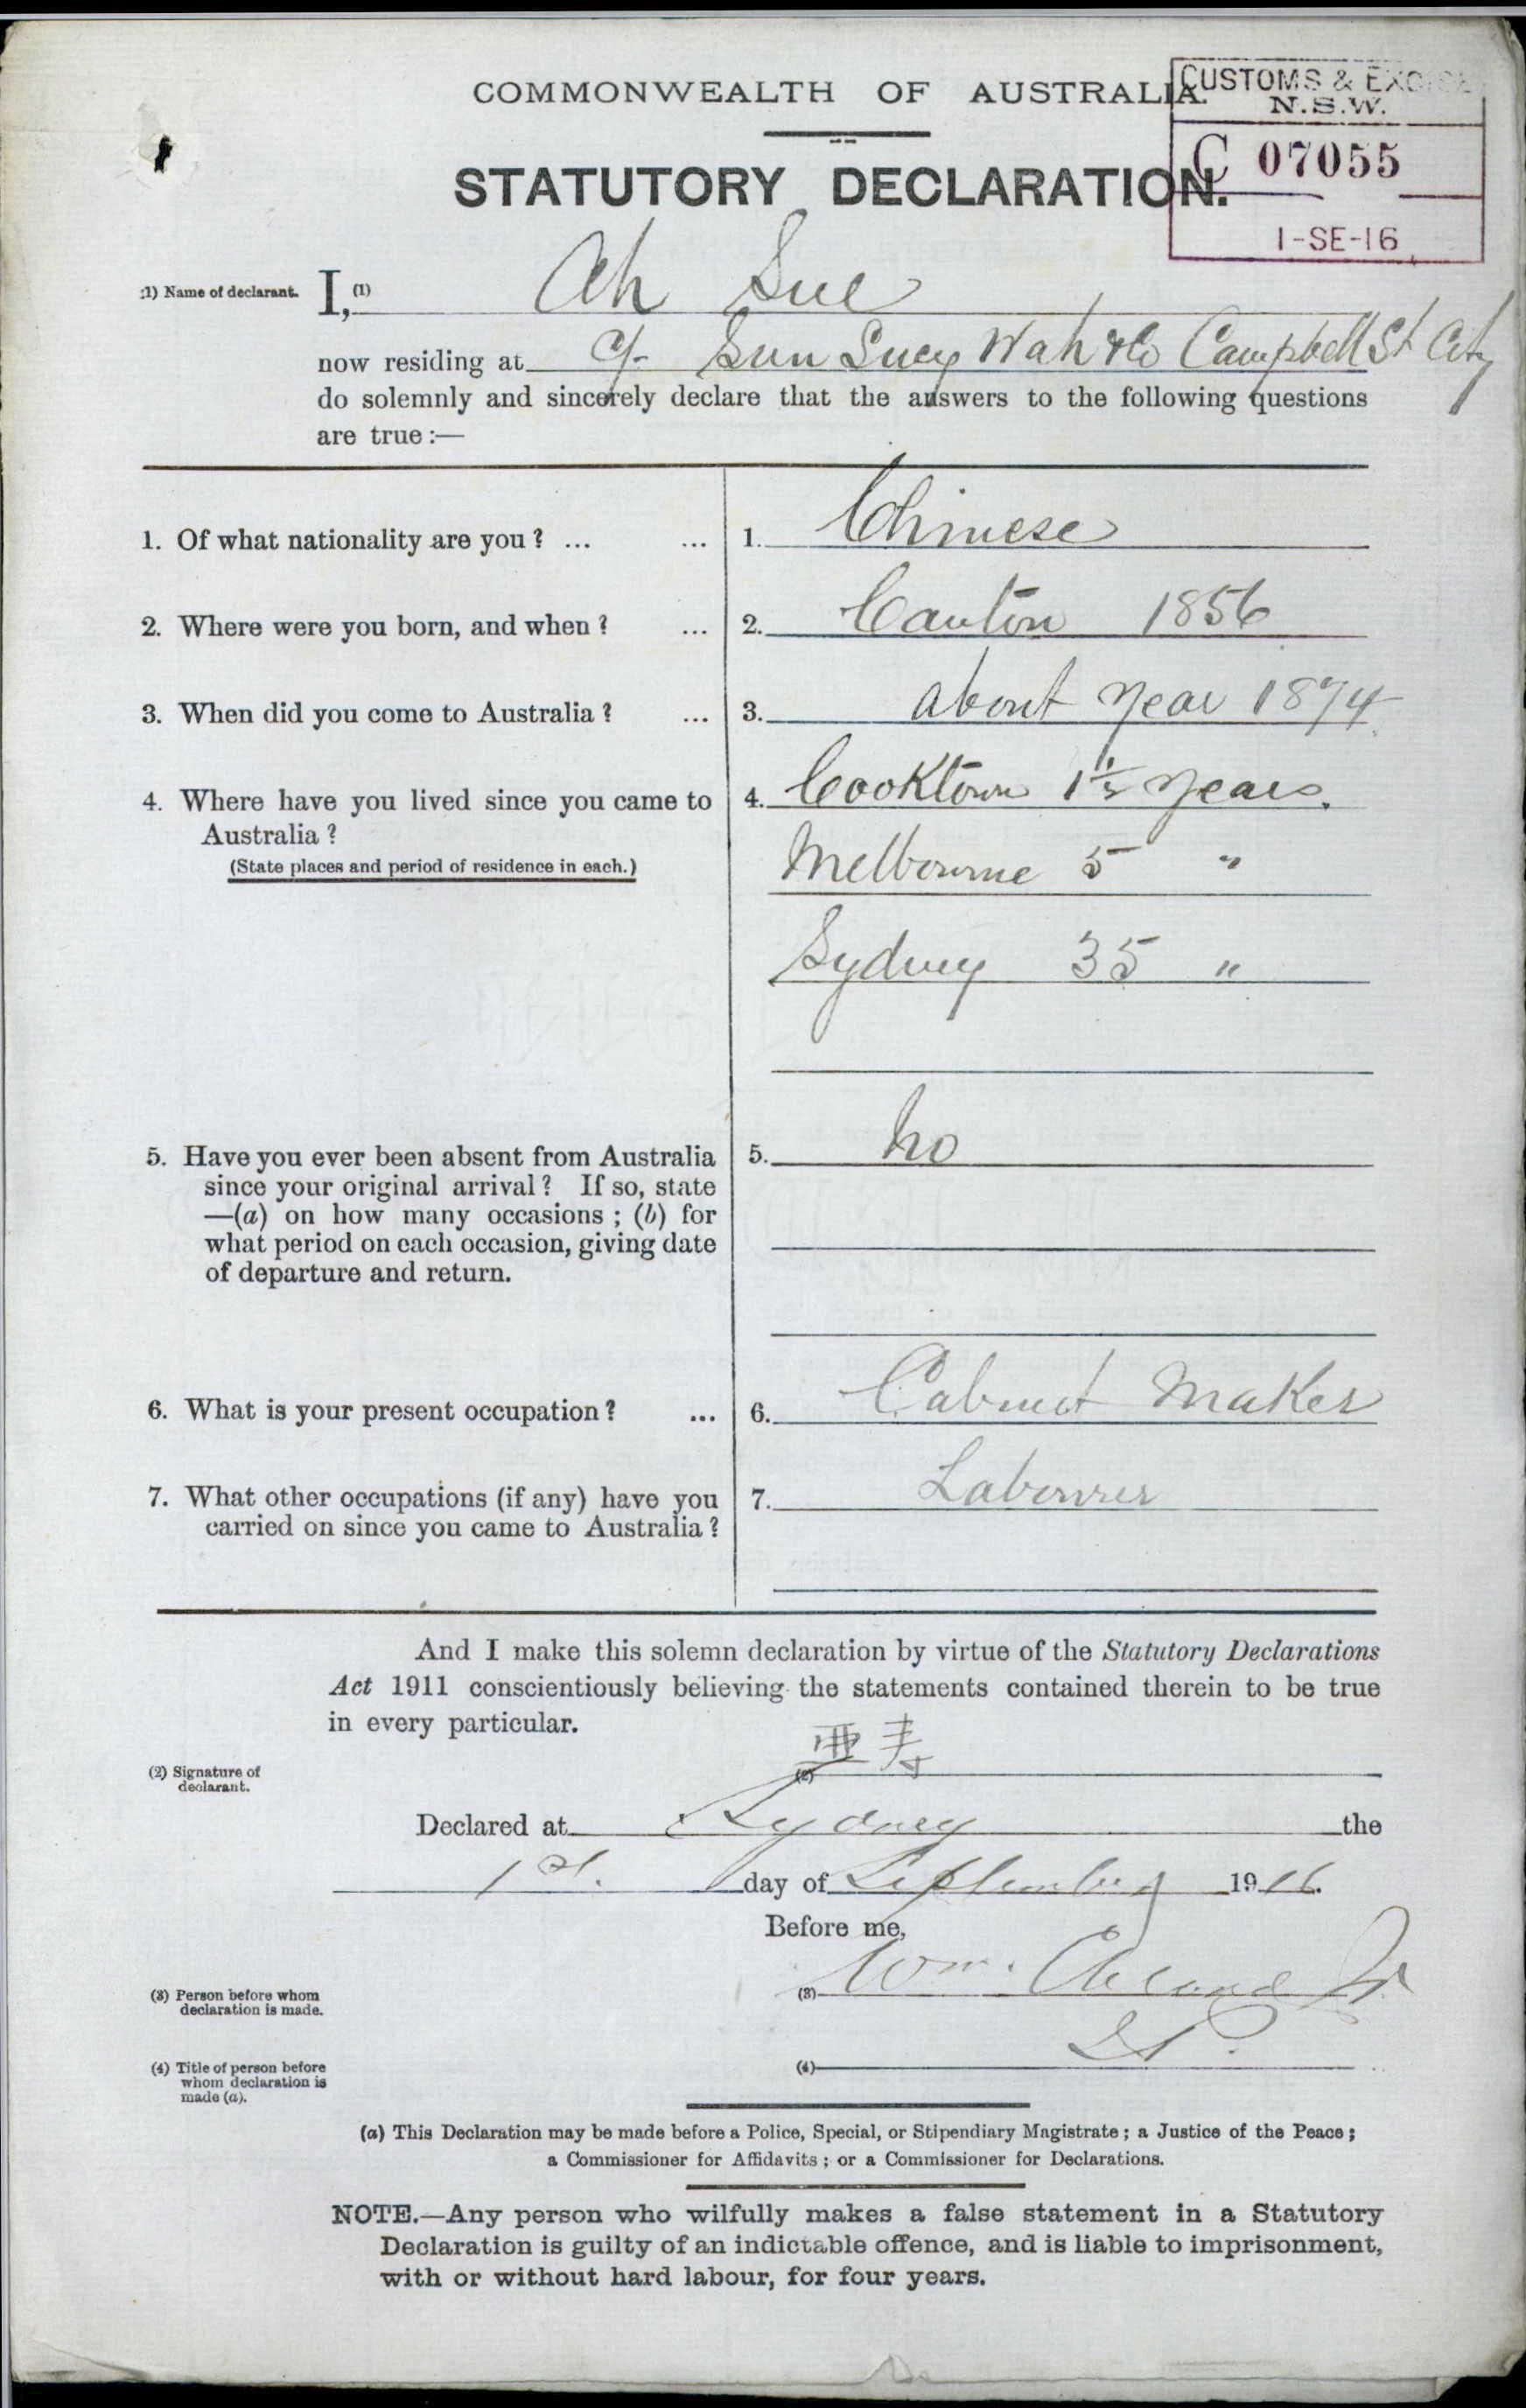 COMMONWEALTH OF AUSTRALIA.
CUSTOMS & EXCISE
N.S.W.
C 07055
1-SE-16
STATUTORY DECLARATION.
(1) Name of declarant. I, (1) Ah Sue
now residing at c/- Sun Suey Wah & Co Campbell St City
do solemnly and sincerely declare that the answers to the following questions
are true:—
1. Of what nationality are you? ... ... 1. Chinese
2. Where were you born, and when? ... 2. Canton 1856
3. When did you come to Australia? ... 3. about year 1874
4. Where have you lived since you came to 4. Cooktown 1½ years.
Australia?
(State places and period of residence in each.) Melbourne 5 "
Sydney 35 "
5. Have you ever been absent from Australia 5. No
since your original arrival? If so, state
—(a) on how many occasions; (b) for
what period on each occasion, giving date
of departure and return.
6. What is your present occupation? ... 6. Cabinet Maker
7. What other occupations (if any) have you 7. Labourer
carried on since you came to Australia?
And I make this solemn declaration by virtue of the Statutory Declarations
Act 1911 conscientiously believing the statements contained therein to be true
in every particular.
(2) Signature of
declarant.
(2) 亜寿
Declared at Sydney the
1st. day of September 1916.
Before me,
(3) Person before whom
declaration is made.
(3) Wm.
(4) Title of person before
whom declaration is
made (a).
(4) JP.
(a) This Declaration may be made before a Police, Special, or Stipendiary Magistrate; a Justice of the Peace;
a Commissioner for Affidavits; or a Commissioner for Declarations.
NOTE.—Any person who wilfully makes a false statement in a Statutory
Declaration is guilty of an indictable offence, and is liable to imprisonment,
with or without hard labour, for four years.